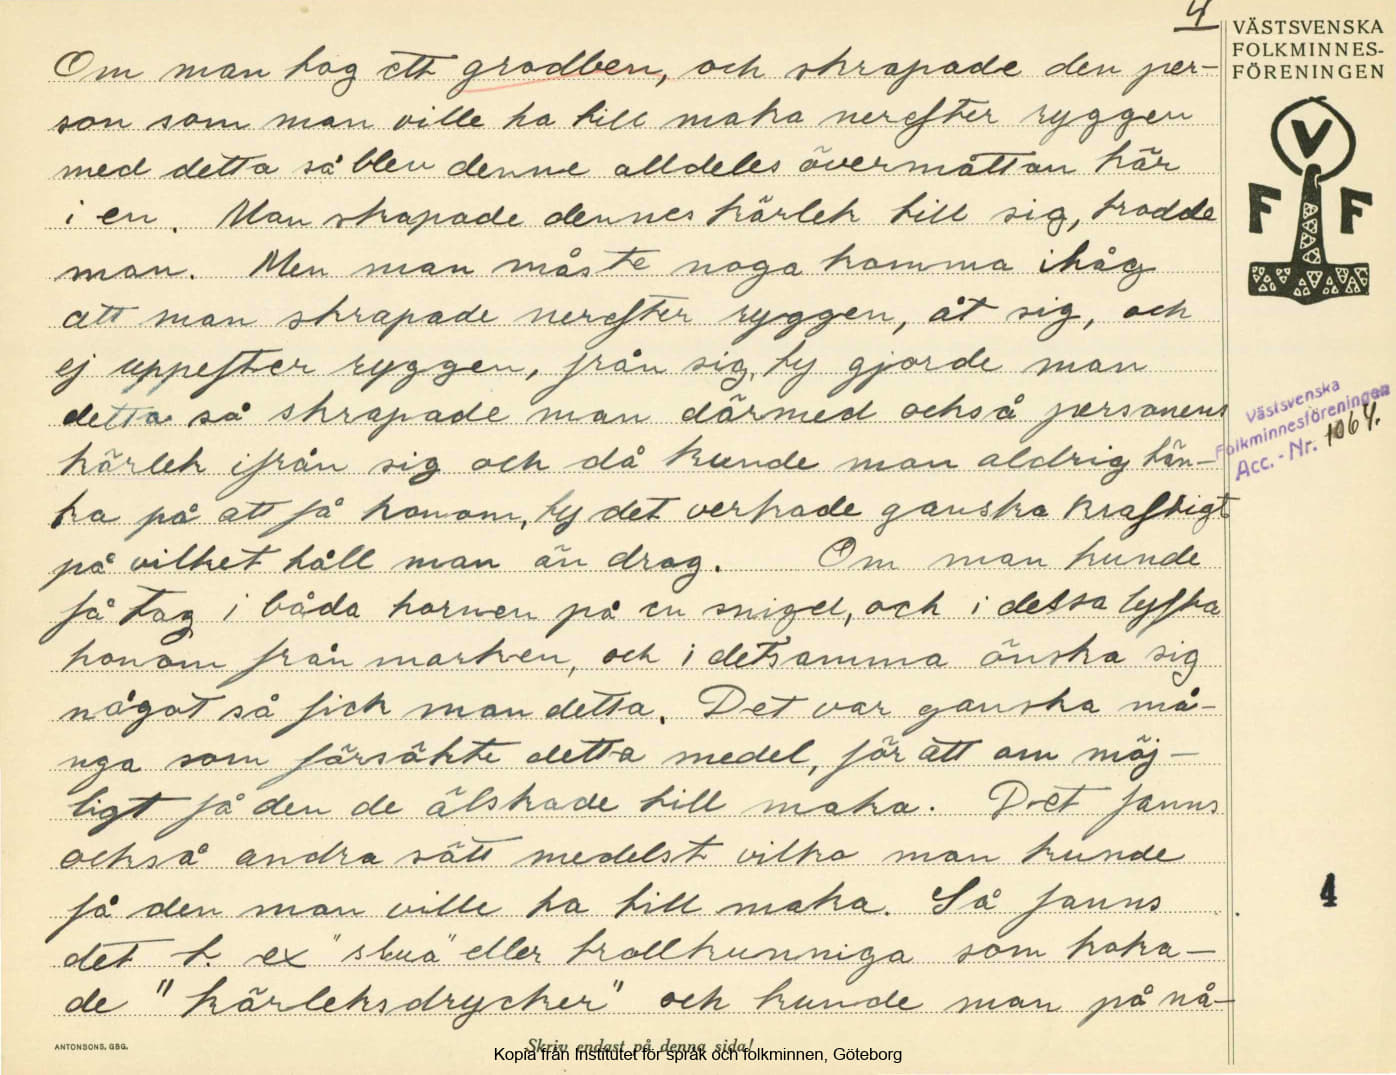 4
VÄSTSVENSKA
FOLKMINNES-
FÖRENINGEN
V
F F
Om man tog ett grodben, och skrapade den per-
son som man ville ha till maka nerefter ryggen
med detta så blev denne alldeles övermåttan kär
i en. Man skapade dennes kärlek till sig, trodde
man. Men man måste noga komma ihåg
att man skrapade nerefter ryggen, åt sig, och
ej uppefter ryggen, från sig, ty gjorde man
detta så skrapade man därmed också personens
kärlek ifrån sig och då kunde man aldrig tän-
ka på att få honom, ty det verkade ganska kraftigt
på vilket håll man än drog. Om man kunde
få tag i båda hornen på en snigel, och i dessa lyfta
honom från marken, och i detsamma önska sig
något så fick man detta. Det var ganska må-
nga som försökte detta medel, för att om möj-
ligt få den de älskade till maka. Det fanns
också andra sätt medelst vilka man kunde
få den man ville ha till maka. Så fanns
det t. ex "slua" eller trollkunniga som koka-
de "kärleksdrycker" och kunde man på nå-
Västsvenska
Folkminnesföreningen
Acc. - Nr. 1064.
4
ANTONSONS, GBG.
Skriv endast på denna sida!
Kopia från Institutet för språk och folkminnen, Göteborg